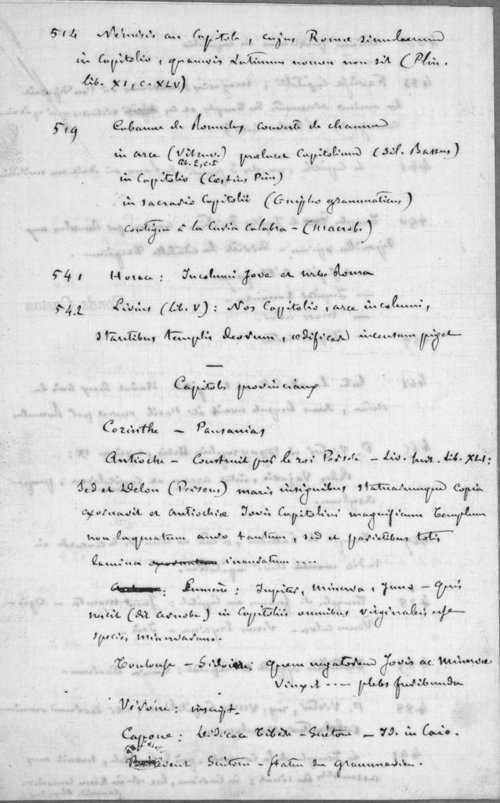 514 Némésis au Capitole, cujus Romae simulacrum
in Capitolio, quamvis Latinum nomen non sit (Plin.
lib. XI, c. XLV)
519 Cabane de Romulus couverte de chaume
in arce (Vitruv. lib. 2, c. 1) Capitolium (Sil. Bassus)
in Capitolio (Cestius Pius)
in sacrario Capitolii (grammaticus)
Contiguë à la Curia Calabra - (Macrob.)
541 Horace : Incolumi Jove et urbe Roma
542 Livius (lib. V) : Nos Capitolio, arce incolumi,
stantibus templis deorum, aedificare incensa piget
—
Capitoles provinciaux
Corinthe - Pausanias
Antioche - Construit par le roi Persée - Liv. lib. XLI :
Sed et Delon (Perseus) maris insignibus statuarumque copia
exornavit et Antiochiae Jovis Capitolini magnificum templum
non laqueatum auro tantum, sed et parietibus totis
lamina inauratum ....
: Lumen : Jupiter, Minerva, Juno - Quis
nescit (dit Arnobe) in Capitoliis omnibus virginalis esse
species Minervarum.
Toulouse - Sidoine : quem negatorem Jovis ac Minervae
vinxit .... plebs furibunda
Vérone : inscript.
Capoue : Tibère - Suétone - Id. in Caio.
Suétone - statue du grammairien.